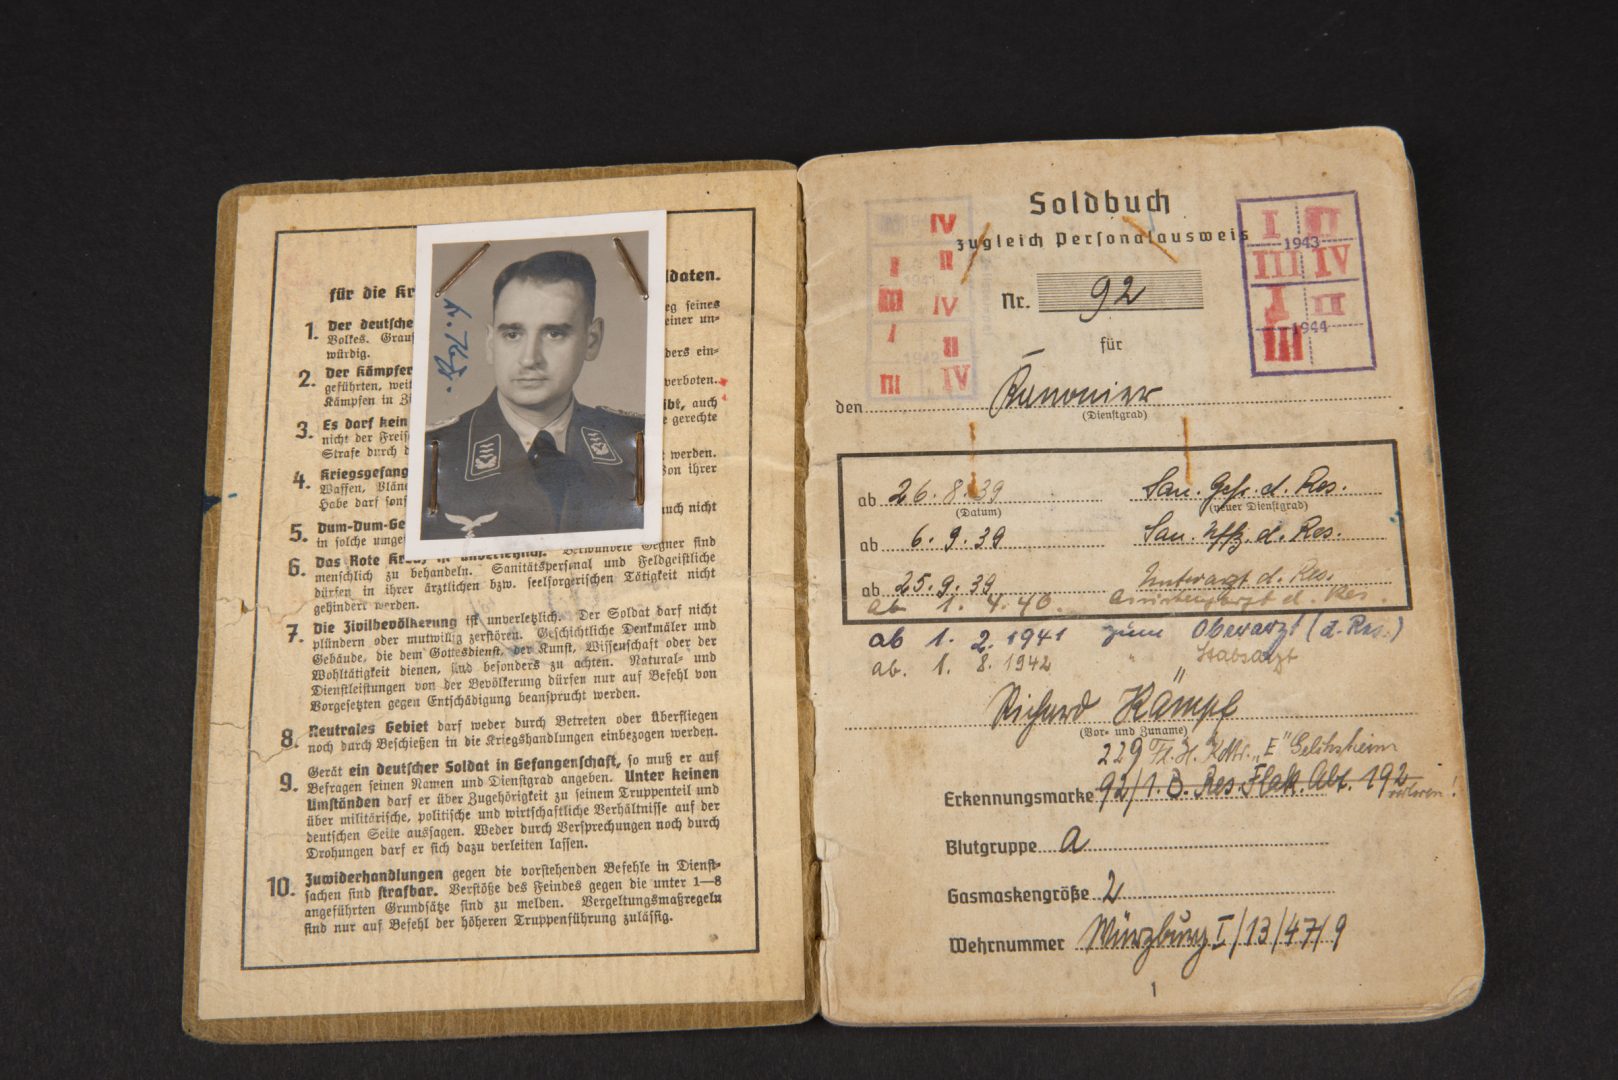 für die Kr
ldaten.
1. Der deutsche
eg seines
Volkes. Grau
einer un-
würdig.
2. Der Kämpfer
ders ein-
geführten, weit
Kämpfen in Zi
verboten.
3. Es darf kein
ibt, auch
nicht der Freis
e gerechte
Strafe durch d
4. Kriegsgefang
t werden.
Waffen, Pläne
Von ihrer
Habe darf sons
5. Dum-Dum-Ge
auch nicht
in solche umge
6. Das Rote Kreuz ist unverletzlich. Verwundete Gegner sind
menschlich zu behandeln. Sanitätspersonal und Feldgeistliche
dürfen in ihrer ärztlichen bzw. seelsorgerischen Tätigkeit nicht
gehindert werden.
7. Die Zivilbevölkerung ist unverletzlich. Der Soldat darf nicht
plündern oder mutwillig zerstören. Geschichtliche Denkmäler und
Gebäude, die dem Gottesdienst, der Kunst, Wissenschaft oder der
Wohltätigkeit dienen, sind besonders zu achten. Natural- und
Dienstleistungen von der Bevölkerung dürfen nur auf Befehl von
Vorgesetzten gegen Entschädigung beansprucht werden.
8. Neutrales Gebiet darf weder durch Betreten oder Überfliegen
noch durch Beschießen in die Kriegshandlungen einbezogen werden.
9. Gerät ein deutscher Soldat in Gefangenschaft, so muß er auf
Befragen seinen Namen und Dienstgrad angeben. Unter keinen
Umständen darf er über Zugehörigkeit zu seinem Truppenteil und
über militärische, politische und wirtschaftliche Verhältnisse auf der
deutschen Seite aussagen. Weder durch Versprechungen noch durch
Drohungen darf er sich dazu verleiten lassen.
10. Zuwiderhandlungen gegen die vorstehenden Befehle in Dienst-
sachen sind strafbar. Verstöße des Feindes gegen die unter 1—8
angeführten Grundsätze sind zu melden. Vergeltungsmaßregeln
sind nur auf Befehl der höheren Truppenführung zulässig.
Soldbuch
zugleich Personalausweis
Nr. 92
für
den Kanonier
(Dienstgrad)
IV
I II
1941
III IV
I II
1942
III IV
I II
1943
III IV
I II
1944
III
ab 26.8.39 San. Gefr. d. Res.
(Datum) (neuer Dienstgrad)
ab 6.9.39 San. Uffz. d. Res.
ab 25.9.39 Unterarzt d. Res.
ab 1.4.40. Assistenzarzt d. Res.
ab 1.2.1941 zum Oberarzt (d. Res.)
ab. 1. 8. 1942 " Stabsarzt
Richard Kämpf
(Vor- und Zuname)
229 Fl. H. Kdtr. „E"
Erkennungsmarke 92/1. B. Res. Flak. Abt. 192 verloren!
Blutgruppe A
Gasmaskengröße 2
Wehrnummer Würzburg I/13/47/9
1